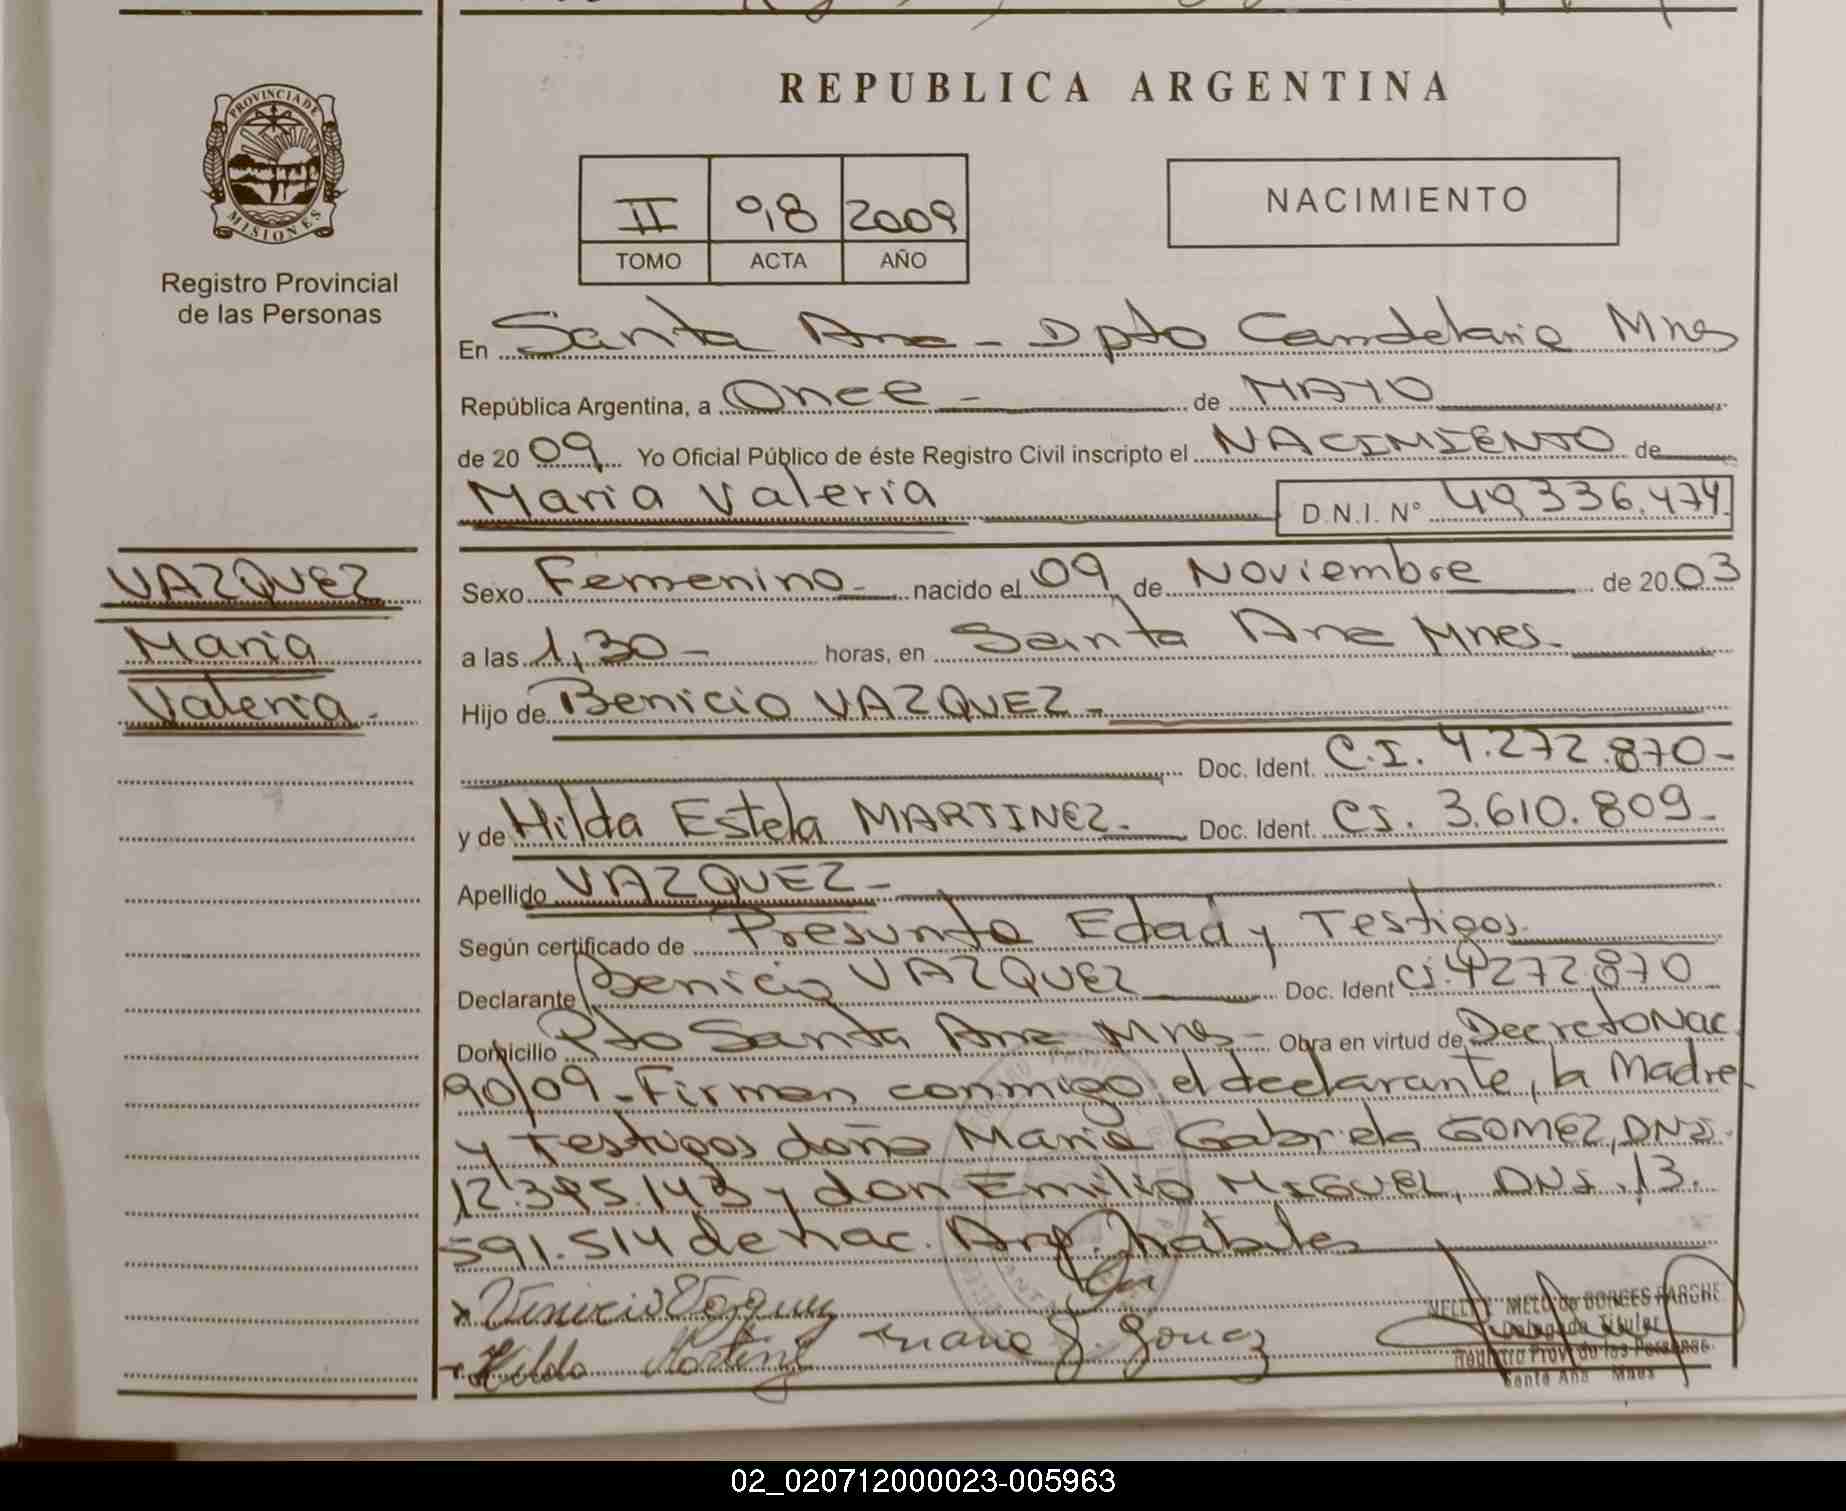 REPUBLICA ARGENTINA
PROVINCIA DE MISIONES
Registro Provincial
de las Personas
II 98 2009
TOMO ACTA AÑO
NACIMIENTO
En Santa Ana - Dpto Candelaria Mnes
República Argentina, a Once - de MAYO
de 20 09 Yo Oficial Público de éste Registro Civil inscripto el NACIMIENTO de
Maria Valeria D.N.I. Nº 49.336.474
VAZQUEZ
Maria
Valeria.
Sexo Femenino nacido el 09 de Noviembre de 20 03
a las 1,30 - horas, en Santa Ana Mnes.
Hijo de Benicio VAZQUEZ -
Doc. Ident. C.I. 4.272.870-
y de Hilda Estela MARTINEZ - Doc. Ident. CI. 3.610.809-
Apellido VAZQUEZ -
Según certificado de Presunta Edad y Testigos.
Declarante Benicio VAZQUEZ Doc. Ident CI. 4272.870
Domicilio Pto Santa Ana Mnes - Obra en virtud de Decreto Nac.
90/09 - Firman conmigo el declarante, la Madre
y Testigos doña Maria Gabriela GOMEZ, DNI.
12.395.143 y don Emilio MIGUEL, DNI. 13.
591.514 de nac. Arg. habiles
Hilda Martinez
NELLY MELO de BORGES
Delegada Titular
Registro Prov. de las Personas
Santa Ana Mnes
02_020712000023-005963